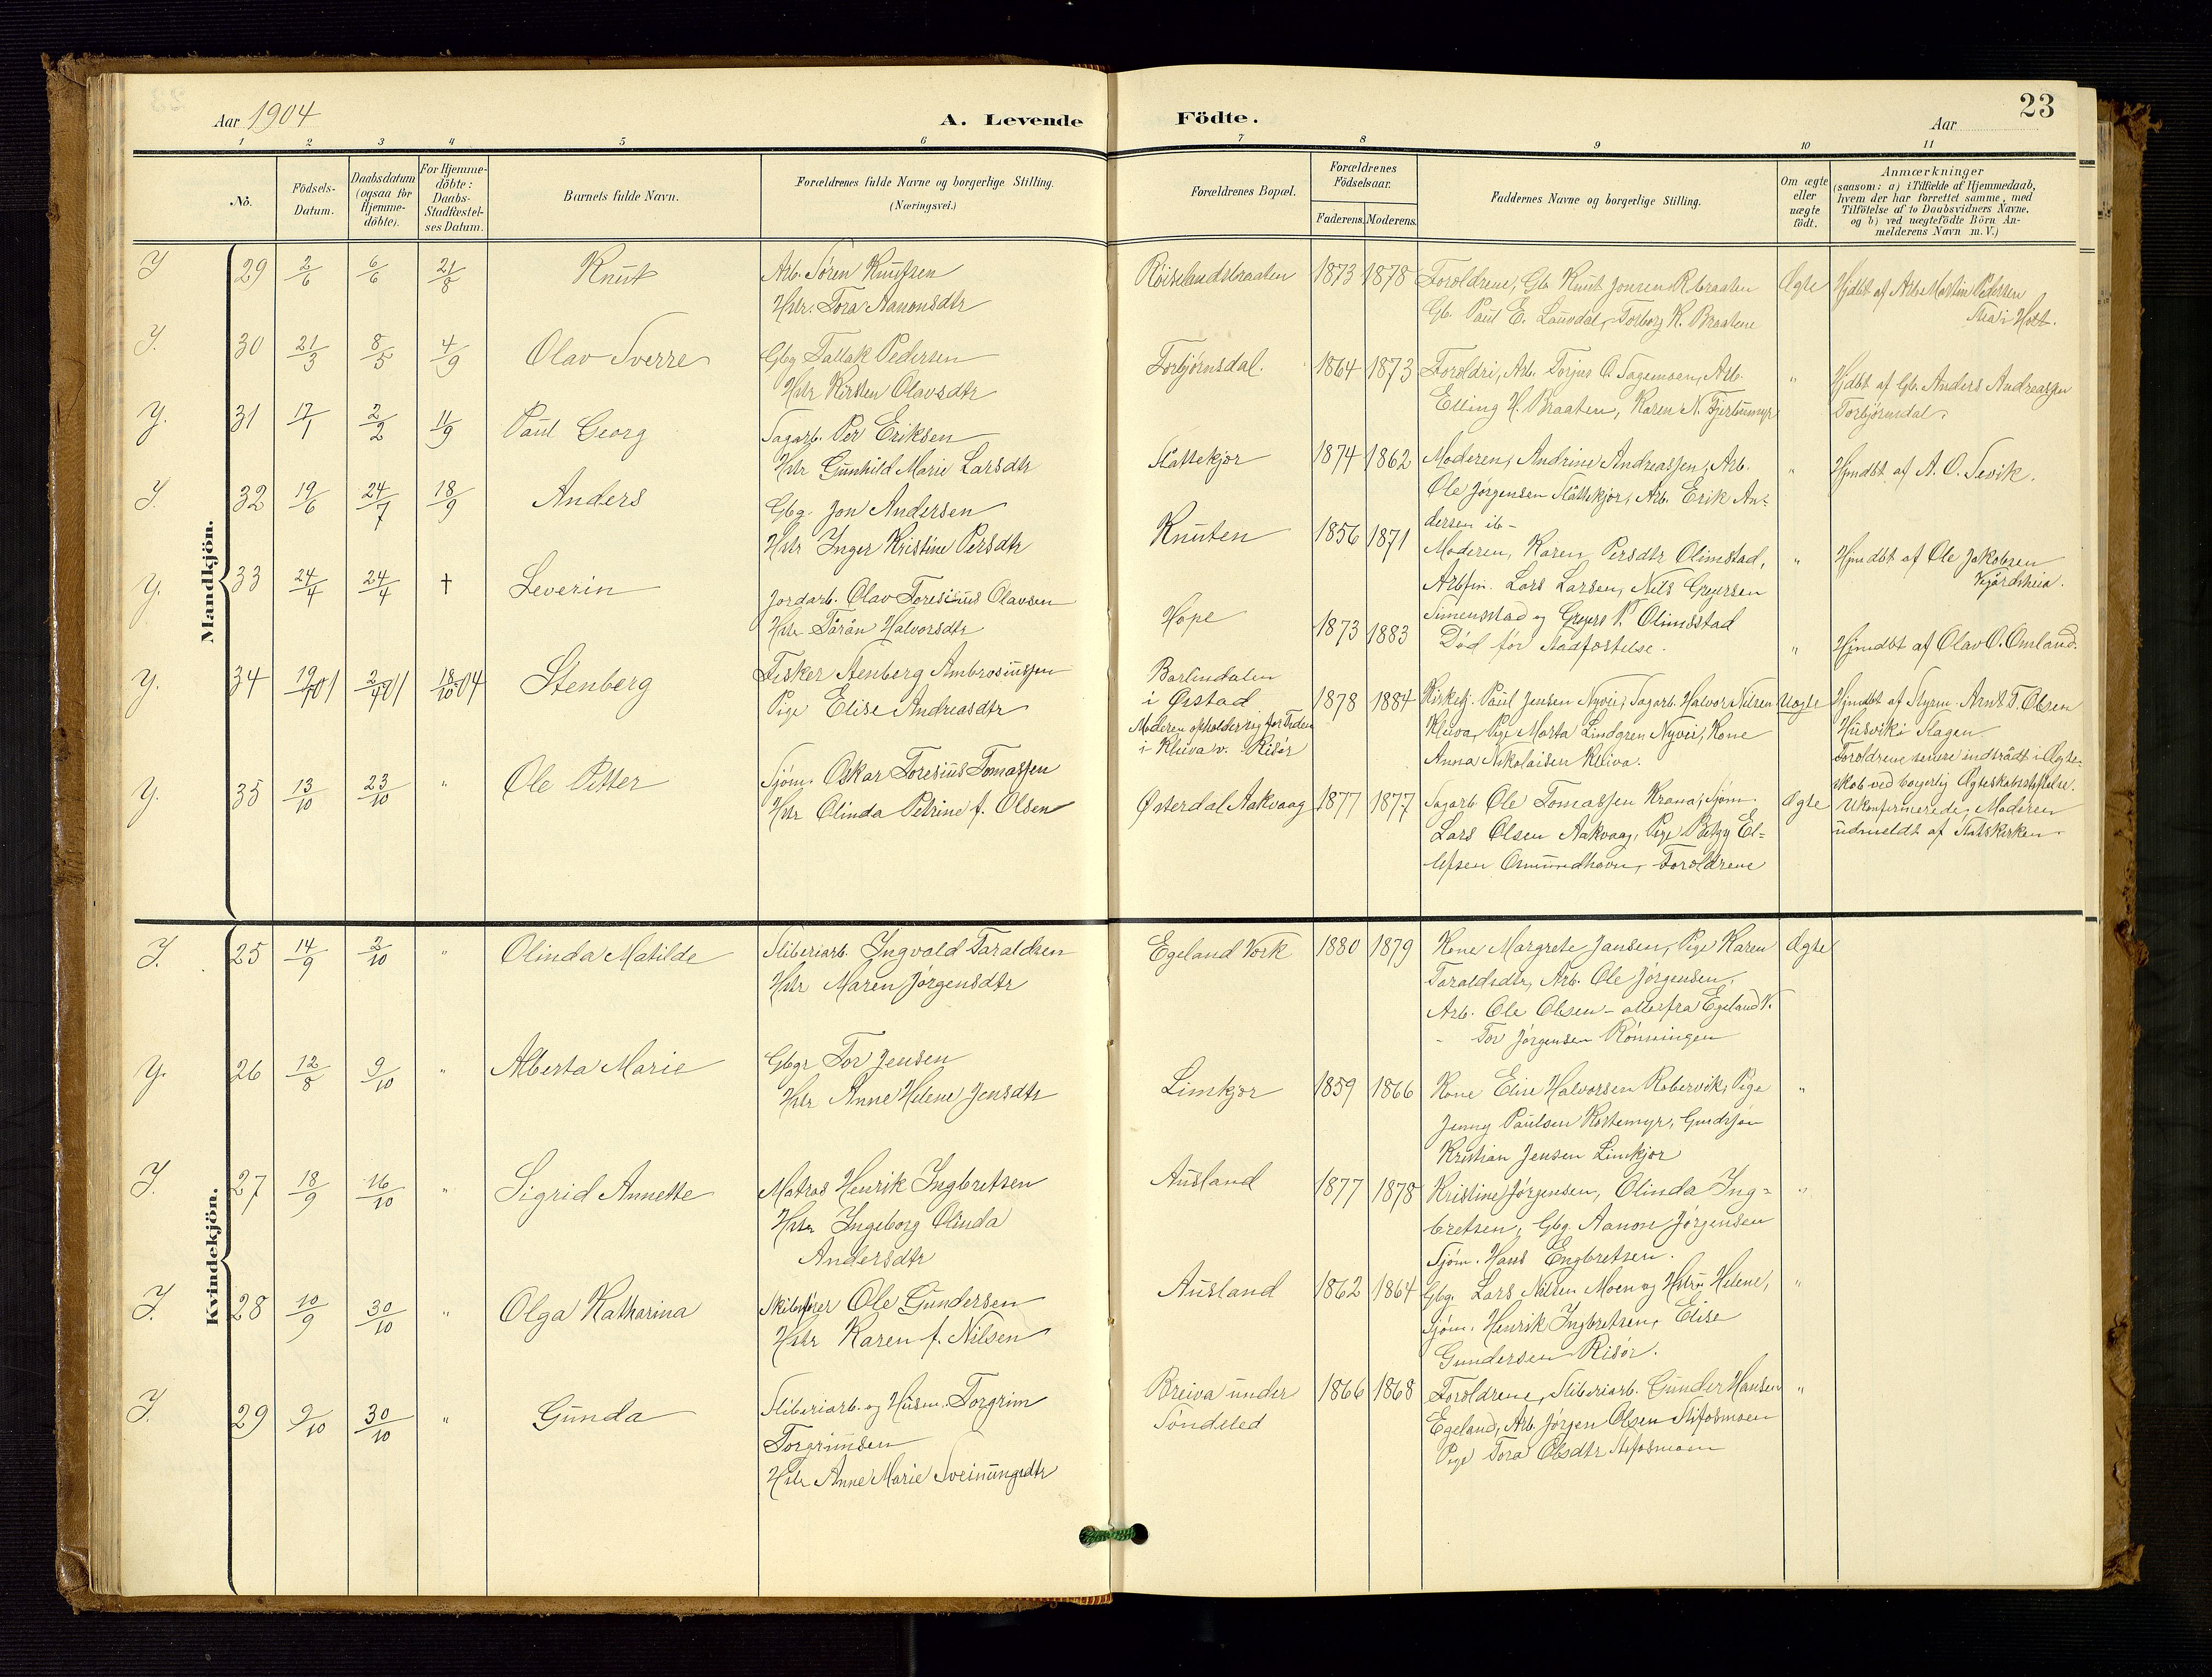 23
Aar 1904
A. Levende Födte.
Aar
1 2 3 4 5 6 7 8 9 10 11
No.
Födsels-Datum.
Daabsdatum (ogsaa for Hjemme-döbte).
For Hjemme-döbte: Daabs-Stadfæstel-ses Datum.
Barnets fulde Navn.
Forældrenes fulde Navne og borgerlige Stilling.
(Næringsvei.)
Forældrenes Bopæl.
Forældrenes Födselsaar.
Faderens. Moderens.
Faddernes Navne og borgerlige Stilling.
Om ægte eller uægte födt.
Anmærkninger
(saasom: a) i Tilfælde af Hjemmedaab,
hvem der har forrettet samme, med
Tilföielse af to Daabsvidners Navne,
og b) ved uægtefödte Börn An-
melderens Navn m. V.)
Mandkjön.
J 29 2/6 6/6 21/8 Knut
Arb. Søren Knutsen
Hstr. Tora Aanonsdtr
Røiselandsbraaten 1873 1878
Forældrene, Gb. Knut Jonsen Rbraaten
Gb. Paul E. Lauvdal, Torborg K. Braatene
Ægte
Hjdbt af Arb. Martin Pedersen
i Holt.
J. 30 21/3 8/5 4/9 Olav Sverre
Gbg Tallak Pedersen
Hstr Kirsten Olavsdtr
Torbjørnsdal. 1864 1873
Forældri, Arb. Torjus O. Sagemoen, Arb.
Elling H. Braaten, Karen N.
"
Hjdbt af Gb. Anders Andreassen
Torbjørnsdal.
Y. 31 17/1 2/2 11/9 Paul Georg
Sagarb. Per Eriksen
Hstr Gunhild Marie Larsdtr
Slattekjær 1874 1862
Moderen, Andrine Andreassen, Arb.
Ole Jørgensen Slattekjær, Arb. Erik An-
dersen ib-
"
Hjmdbt. af A. O. Sevik.
J. 32 19/6 24/7 18/9 Anders
Gbg. Jon Andersen
Hstr Inger Kristine Persdtr
Knuten 1856 1871
Moderen, Karen Persdtr Olimstad,
Arbfm. Lars Larsen, Nils Greyersen
Simenstad og Greyers P. Olimstad
"
Hjmdbt af Ole Jakobsen
Vegårdsheia.
Y. 33 24/4 24/4 † Leverin
Jordarb. Olav Toresius Olavsen
Hstr Tårån Halvorsdtr
Hope 1873 1883
Død før Stadfæstelse.
"
Hjmdbt af Olav O. Omland.
Y. 34 19/1 01 2/4 01 18/10 04 Stenberg
Fisker Stenberg Ambrosiussen
Pige Elise Andreasdtr
Barlindalen
i Østad
Moderen opholder sig for Tiden
i Kleiva v. Risør
1878 1884
Kirketj. Paul Jensen Nyvei, Sagarb. Halvor Nilsen
Kleiva, Pige Marta Lindgren Nyvei, Kone
Anna Nikolaisen Kleiva.
Uægte
Hjmdbt af Styrm. Arnt T. Olsen
Husvik i Slagen
Forældrene senere indtrådt i Ægte-
skab ved borgerlig Ægteskabsstiftelse.
Y. 35 13/10 23/10 " Ole Petter
Sjøm. Oskar Toresius Tomassen
Hstr Olinda Petrine f. Olsen
Østerdal Aakvaag 1877 1877
Sagarb Ole Tomassen Krana, Sjøm.
Lars Olsen Aakvaag, Pige Betzy El-
lefsen Osmundhavn, Forældrene
Ægte
Ukonfirmerede, Moderen
udmeldt af Statskirken.
Kvindekjön.
J. 25 14/9 2/10 " Olinda Matilde
Sliberiarb. Ingvald Taraldsen
Hstr Maren Jørgensdtr
Egeland Værk 1880 1879
Kone Margrete Jansen, Pige Karen
Taraldsdtr, Arb. Ole Jørgensen,
Arb. Ole Olsen - alle fra Egeland V.
- Tor Jørgensen Rønningen
Ægte
Y. 26 12/8 9/10 " Alberta Marie
Gbgr Tor Jensen
Hstr Anne Helene Jensdtr
Limkjær 1859 1866
Kone Elise Halvorsen Robervik, Pige
Jenny Paulsen Røstemyr, Gaardsøn
Kristian Jensen Limkjær
"
J. 27 18/9 16/10 " Sigrid Annette
Matros Henrik Ingbretsen
Hstr Ingeborg Olinda
Andersdtr
Ausland 1877 1878
Kristine Jørgensen, Olinda Ing-
bretsen, Gbg. Aanon Jørgensen
Sjøm. Hans Engbretsen.
"
J. 28 10/9 30/10 " Olga Katharina
Skibsfører Ole Gundersen
Hstr Karen f. Nilsen
Ausland 1862 1864
Gbg. Lars Nilsen Moen og Hstr Helene,
Sjøm. Henrik Ingbretsen, Elise
Gundersen Risør.
"
J. 29 9/10 30/10 " Gunda
Sliberiarb. og Husm. Torgrim
Torgrimsen
Hstr Anne Marie Sveinungsdtr
Breiva under
Søndeled
1866 1868
Forældrene, Sliberiarb. Gunder Hansen
Egeland, Arb. Jørgen Olsen Stifosmoen
Pige Tora Olsdtr Stifosmoen
"